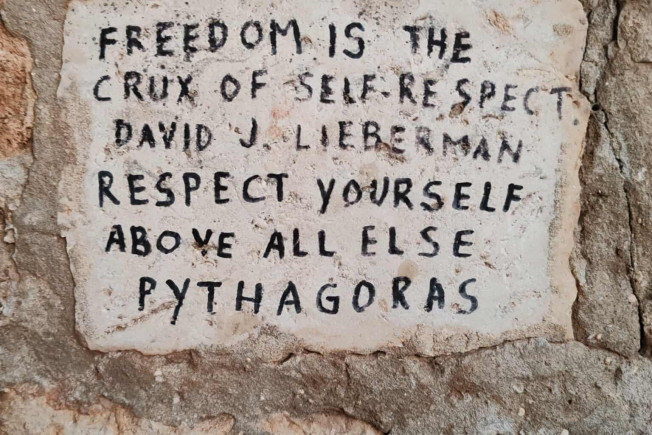 FREEDOM IS THE
CRUX OF SELF-RESPECT.
DAVID J. LIEBERMAN
RESPECT YOURSELF
ABOVE ALL ELSE
PYTHAGORAS